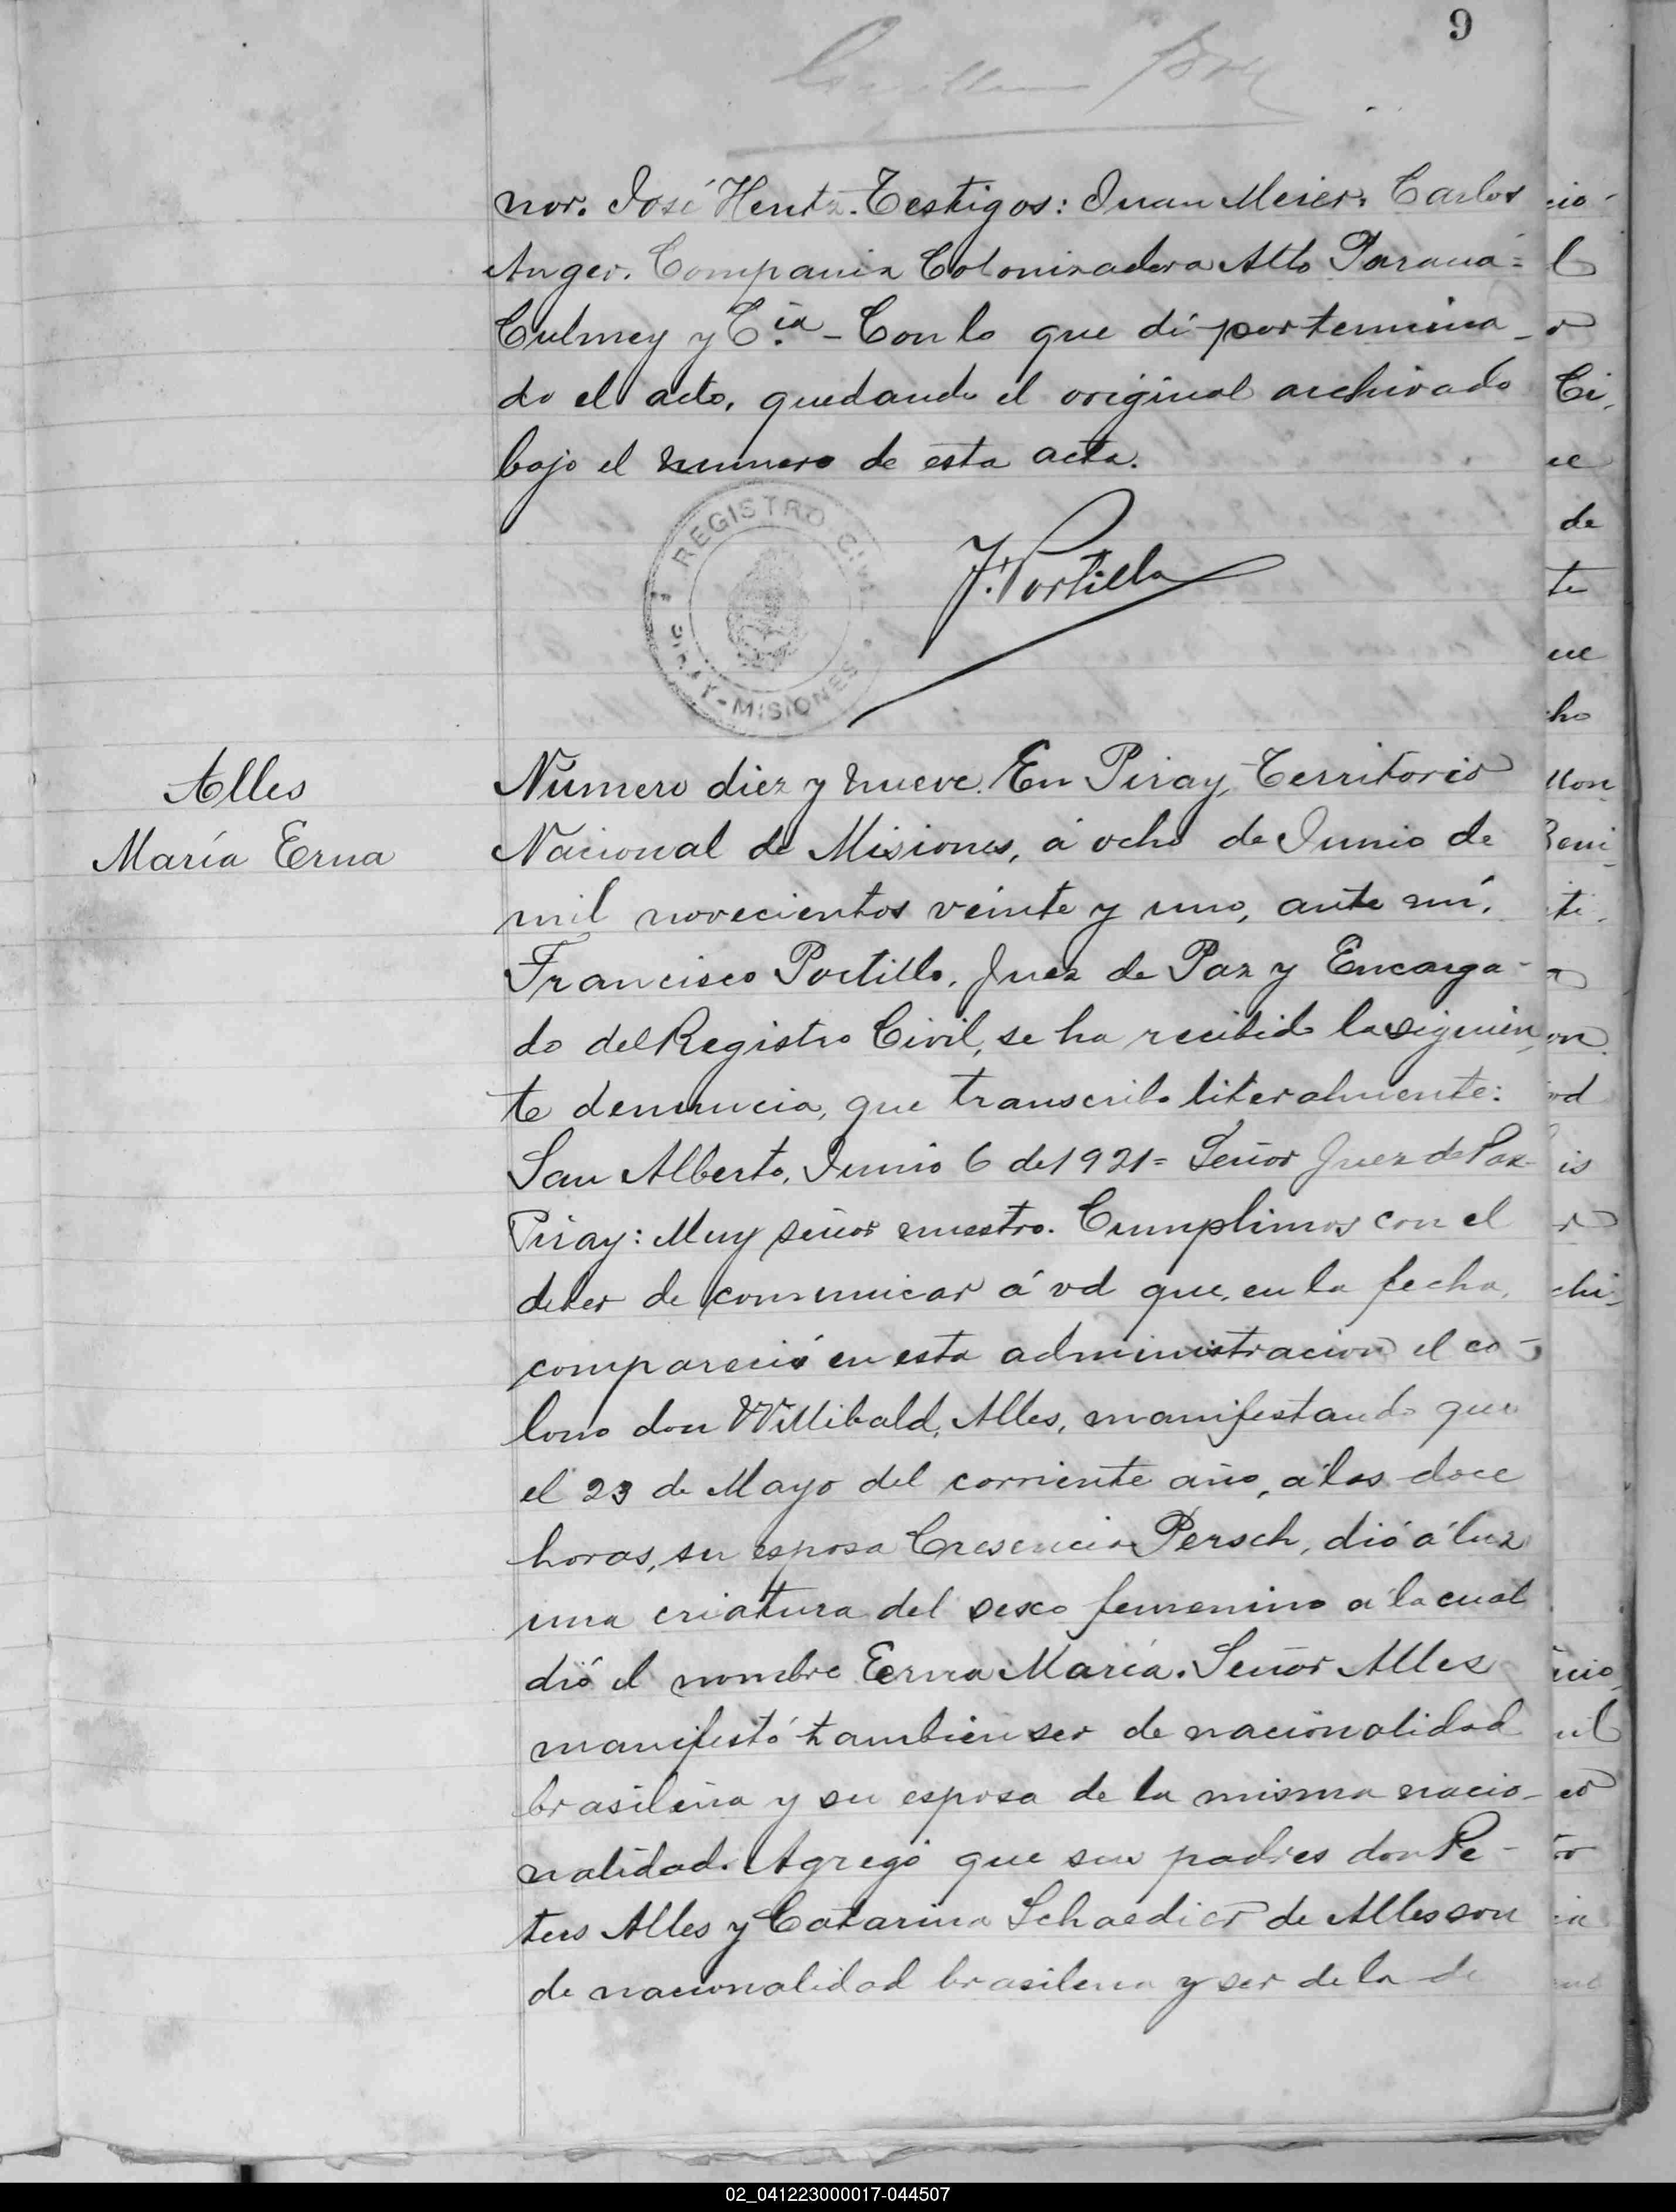 9
nor. José Hentz. Testigos: Juan Meier. Carlos
Anger. Compania Colonizadora Alto Paraná=
Culmey y Cía - Con lo que dí por termina-
do el acto, quedando el original archivado
bajo el numero de esta acta.
REGISTRO CIVIL
PIRAY - MISIONES
F. Portillo
Alles
María Erna
Número diez y nueve. En Piray, Territorio
Nacional de Misiones, á ocho de Junio de
mil novecientos veinte y uno, ante mí,
Francisco Portillo, Juez de Paz y Encarga-
do del Registro Civil, se ha recibido la siguien
te denuncia, que transcribo literalmente:
San Alberto, Junio 6 de 1921= Señor Juez de Paz
Piray: Muy señor nuestro. Cumplimos con el
deber de comunicar á vd que, en la fecha,
compareció en esta administracion el co-
lono don Willibald, Alles, manifestando que
el 23 de Mayo del corriente año, á las doce
horas, su esposa Cresencia Persch, dió á luz
una criatura del sexo femenino a la cual
dió el nombre Erna María. Señor Alles
manifestó tambien ser de nacionalidad
brasileña y su esposa de la misma nacio-
nalidad. Agregó que sus padres don Pe-
ters Alles y Catarina Schaedier de Alles son
de nacionalidad brasilena y ser de la de
02_041223000017-044507